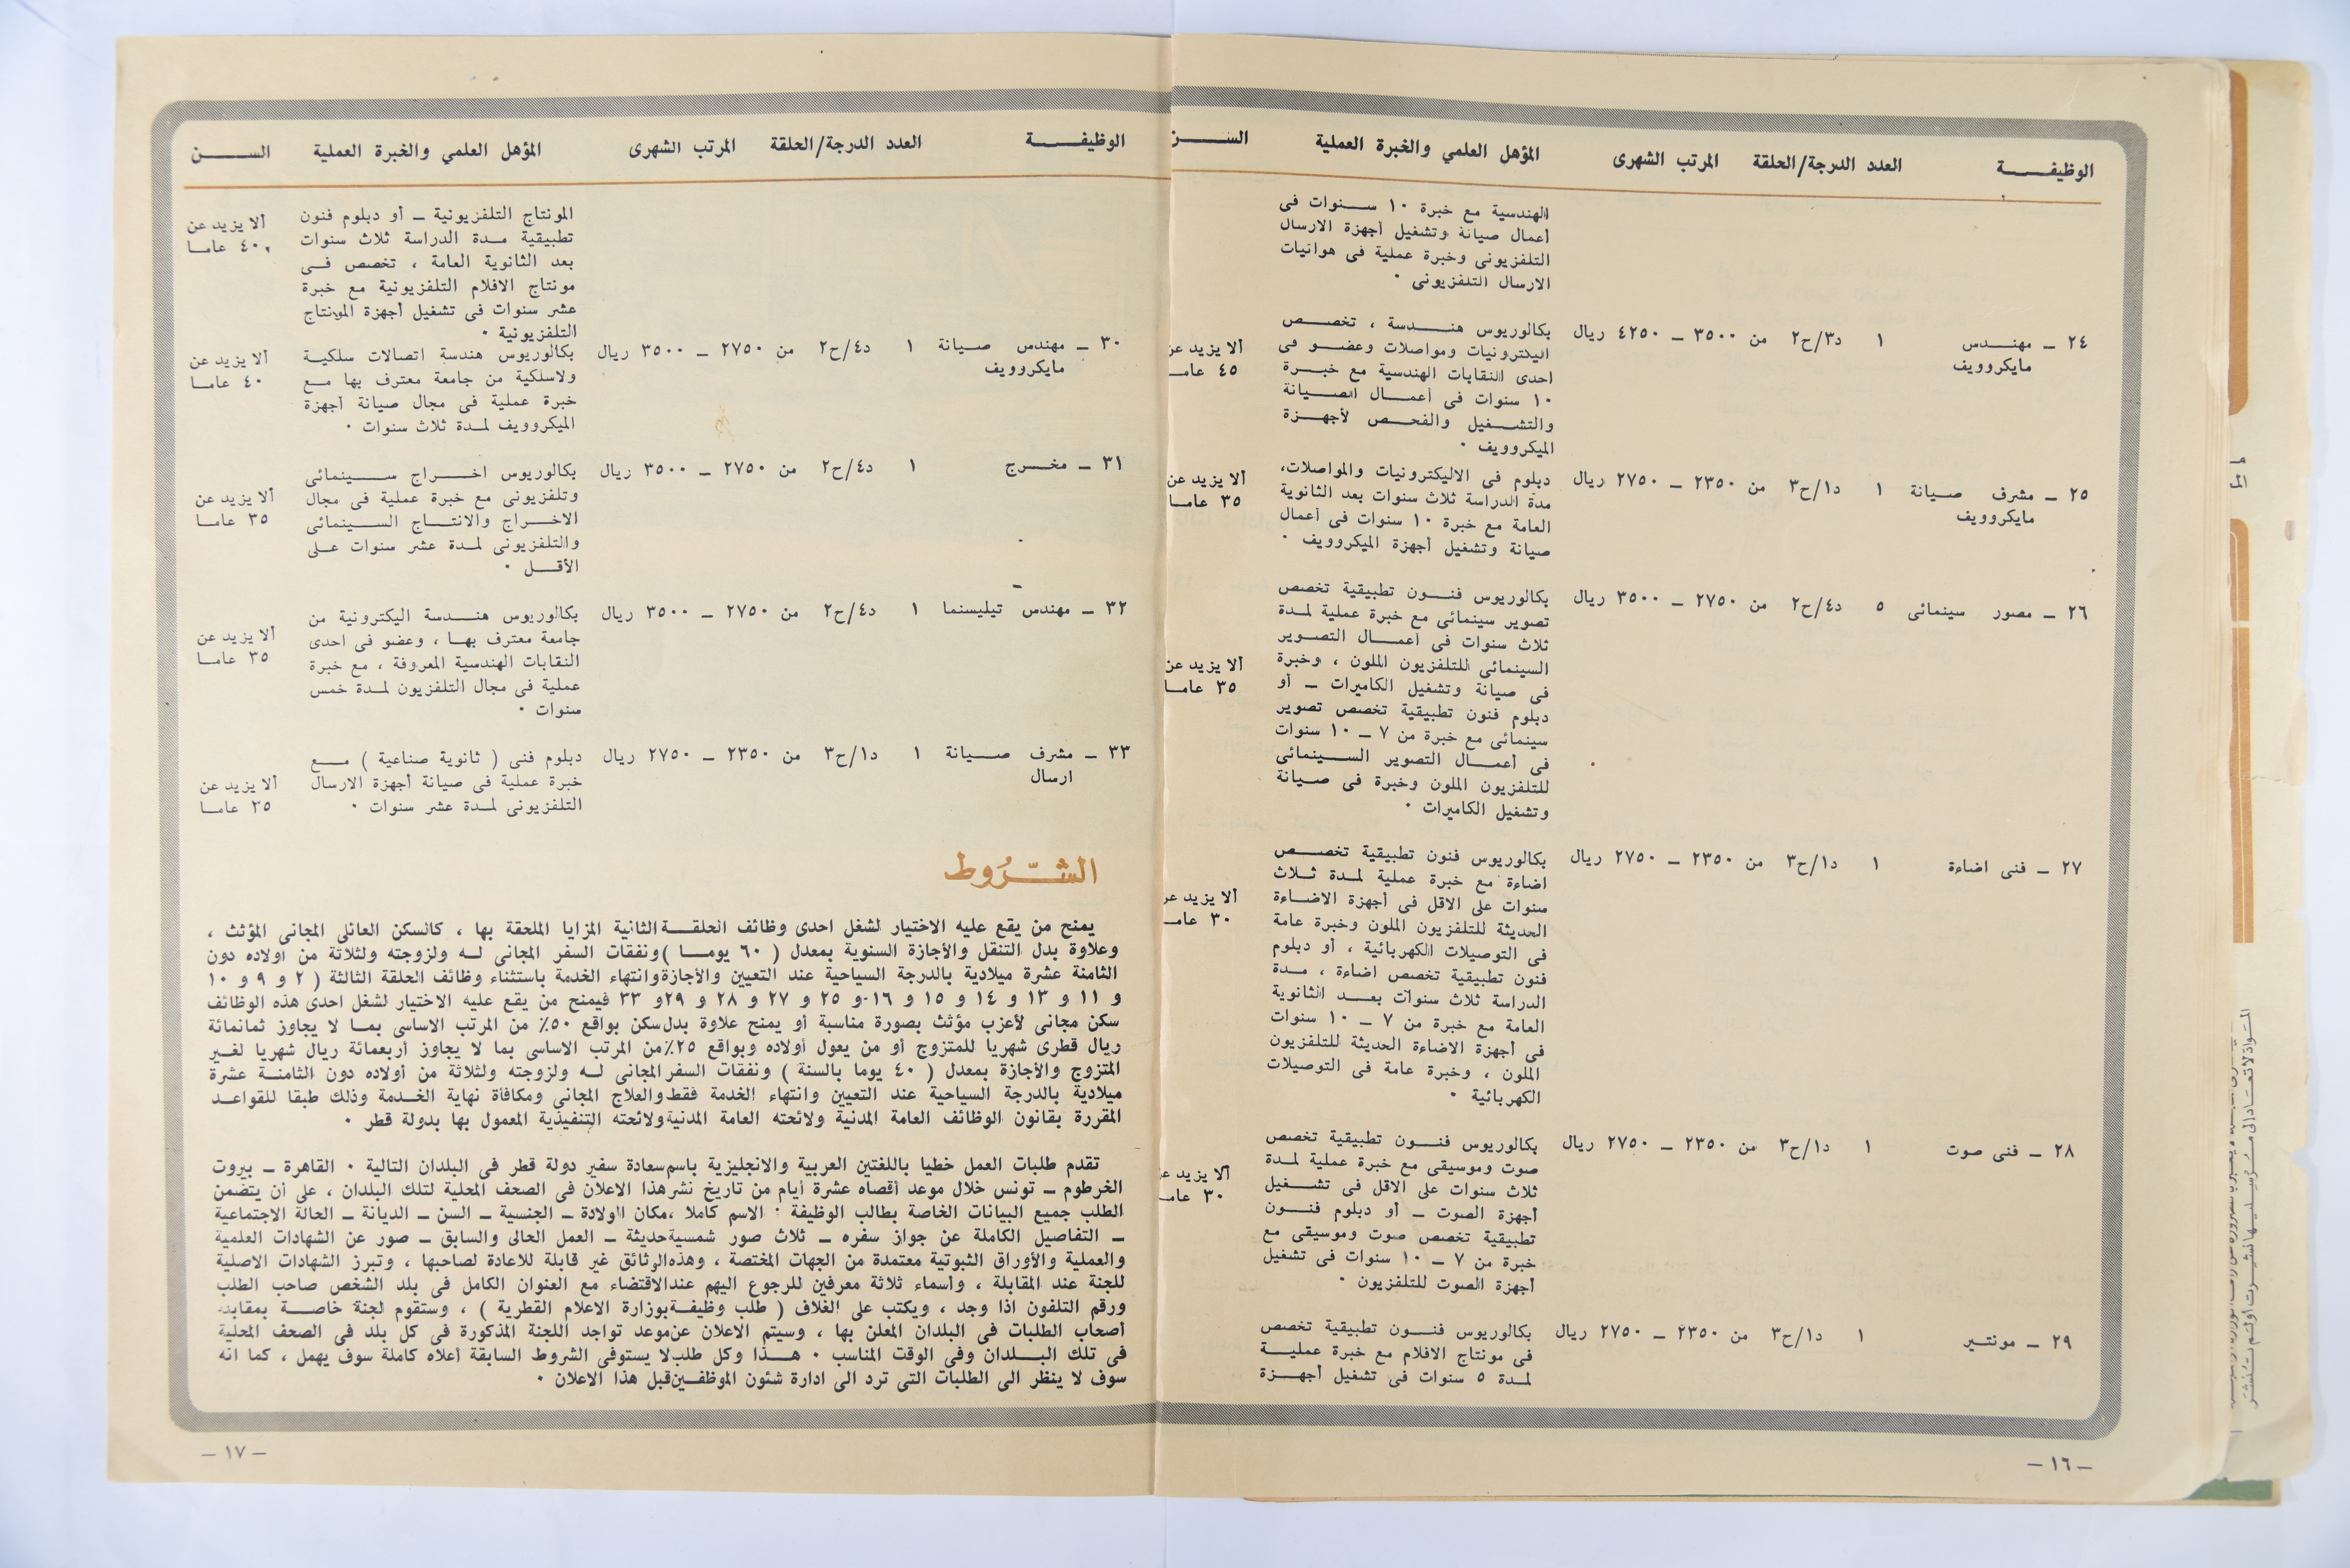 الوظيفـــــة العدد الدرجة/الحلقة المرتب الشهرى المؤهل العلمي والخبرة العملية الســــن
الهندسية مع خبرة ١٠ ســنوات فى
أعمال صيانة وتشغيل أجهزة الارسال
التلفزيونى وخبرة عملية فى هوائيات
الارسال التلفزيونى ٠
٢٤ ــ مهنــدس ١ د٣/ح٢ من ٣٥٠٠ ــ ٤٢٥٠ ريال بكالوريوس هنــــدسة ، تخصــص
مايكروويف
اليكترونيات ومواصلات وعضــو فى
احدى النقابات الهندسية مع خبــرة
١٠ سنوات فى أعمـــال الصــيانة
والتشــغيل والفحــص لأجهــزة
الميكروويف ٠
ألا يزيد عن
٤٥ عامــا
٢٥ ــ مشرف صــيانة ١ د١/ح٣ من ٢٣٥٠ ــ ٢٧٥٠ ريال دبلوم فى الاليكترونيات والمواصلات،
مايكروويف
مدة الدراسة ثلاث سنوات بعد الثانوية
العامة مع خبرة ١٠ سنوات فى أعمال
صيانة وتشغيل أجهزة الميكروويف ٠
ألا يزيد عن
٣٥ عامــا
٢٦ ــ مصور سينمائى ٥ د٤/ح٢ من ٢٧٥٠ ــ ٣٥٠٠ ريال بكالوريوس فنــون تطبيقية تخصص
تصوير سينمائى مع خبرة عملية لمـدة
ثلاث سنوات فى أعمـــال التصــوير
السينمائى للتلفزيون الملون ، وخبرة
فى صيانة وتشغيل الكاميرات ــ أو
دبلوم فنون تطبيقية تخصص تصوير
سينمائى مع خبرة من ٧ ــ ١٠ سنوات
فى أعمـــال التصوير الســينمائى
للتلفزيون الملون وخبرة فى صــيانة
وتشغيل الكاميرات ٠
ألا يزيد عن
٣٥ عامــا
٢٧ ــ فنى اضاءة ١ د١/ح٣ من ٢٣٥٠ ــ ٢٧٥٠ ريال بكالوريوس فنون تطبيقية تخصــص
اضاءة مع خبرة عملية لمـدة ثــلاث
سنوات على الاقل فى أجهزة الاضــاءة
الحديثة للتلفزيون الملون وخبرة عامة
فى التوصيلات الكهربائية ، أو دبلوم
فنون تطبيقية تخصص اضاءة ، مــدة
الدراسة ثلاث سنوات بعــد الثانوية
العامة مع خبرة من ٧ ــ ١٠ سنوات
فى أجهزة الاضاءة الحديثة للتلفزيون
الملون ، وخبرة عامة فى التوصيلات
الكهربائية ٠
ألا يزيد عن
٣٠ عامــ
٢٨ ــ فنى صوت ١ د١/ح٣ من ٢٣٥٠ ــ ٢٧٥٠ ريال بكالوريوس فنــون تطبيقية تخصص
صوت وموسيقى مع خبرة عملية لمـدة
ثلاث سنوات على الاقل فى تشــغيل
أجهزة الصوت ــ أو دبلوم فنــــون
تطبيقية تخصص صوت وموسيقى مع
خبرة من ٧ ــ ١٠ سنوات فى تشغيل
أجهزة الصوت للتلفزيون ٠
ألا يزيد عـ
٣٠ عامــ
٢٩ ــ مونتــير ١ د١/ح٣ من ٢٣٥٠ ــ ٢٧٥٠ ريال بكالوريوس فنــون تطبيقية تخصص
فى مونتاج الافلام مع خبرة عمليــة
لمـدة ٥ سنوات فى تشغيل أجهــزة
ــ ١٦ ــ
الوظيفـــــة العدد الدرجة/الحلقة المرتب الشهرى المؤهل العلمي والخبرة العملية الســــن
المونتاج التلفزيونية ــ أو دبلوم فنون
تطبيقية مــدة الدراسة ثلاث سنوات
بعد الثانوية العامة ، تخصص فــى
مونتاج الافلام التلفزيونية مع خبرة
عشر سنوات فى تشغيل أجهزة المونتاج
التلفزيونية ٠
ألا يزيد عن
٤٠ عامــا
٣٠ ــ مهندس صــيانة ١ د٤/ح٢ من ٢٧٥٠ ــ ٣٥٠٠ ريال بكالوريوس هندسة اتصالات سلكيـة
مايكروويف
ولاسلكية من جامعة معترف بها مــع
خبرة عملية فى مجال صيانة أجهزة
الميكروويف لمـدة ثلاث سنوات ٠
ألا يزيد عن
٤٠ عامــا
٣١ ــ مخــرج ١ د٤/ح٢ من ٢٧٥٠ ــ ٣٥٠٠ ريال بكالوريوس اخــــراج ســــينمائى
وتلفزيونى مع خبرة عملية فى مجال
الاخــراج والانتــاج الســينمائى
والتلفزيونى لمـدة عشر سنوات علـى
الأقــــل ٠
ألا يزيد عن
٣٥ عامــا
٣٢ ــ مهندس تيليسنما ١ د٤/ح٢ من ٢٧٥٠ ــ ٣٥٠٠ ريال بكالوريوس هنــــدسة اليكترونية من
جامعة معترف بهـا ، وعضو فى احدى
النقابات الهندسية المعروفة ، مع خبرة
عملية فى مجال التلفزيون لمـدة خمس
سنوات ٠
ألا يزيد عن
٣٥ عامــا
٣٣ ــ مشرف صــيانة ١ د١/ح٣ من ٢٣٥٠ ــ ٢٧٥٠ ريال دبلوم فنى ( ثانوية صناعية ) مـــع
ارسال
خبرة عملية فى صيانة أجهزة الارسال
التلفزيونى لمـدة عشر سنوات ٠
ألا يزيد عن
٣٥ عامــا
الشـــرُوط
يمنح من يقع عليه الاختيار لشغل احدى وظائف الحلقــة الثانية المزايا الملحقة بها ، كالسكن العائلى المجانى المؤثث ،
وعلاوة بدل التنقل والأجازة السنوية بمعدل ( ٦٠ يومــا ) ونفقات السفر المجانى لــه ولزوجته ولثلاثة من أولاده دون
الثامنة عشرة ميلادية بالدرجة السياحية عند التعيين والأجازة وانتهاء الخدمة باستثناء وظائف الحلقة الثالثة ( ٢ و ٩ و ١٠
و ١١ و ١٣ و ١٤ و ١٥ و ١٦ و ٢٥ و ٢٧ و ٢٨ و ٢٩ و ٣٣ فيمنح من يقع عليه الاختيار لشغل احدى هذه الوظائف
سكن مجانى لأعزب مؤثث بصورة مناسبة أو يمنح علاوة بدل سكن بواقع ٥٠٪ من المرتب الاساسى بمــا لا يجاوز ثمانمائة
ريال قطرى شهريا للمتزوج أو من يعول أولاده وبواقع ٢٥٪ من المرتب الاساسى بما لا يجاوز أربعمائة ريال شهريا لغــير
المتزوج والأجازة بمعدل ( ٤٠ يوما بالسنة ) ونفقات السفر المجانى لــه ولزوجته ولثلاثة من أولاده دون الثامنــة عشرة
ميلادية بالدرجة السياحية عند التعيين وانتهاء الخدمة فقط والعلاج المجانى ومكافأة نهاية الخــدمة وذلك طبقا للقواعــد
المقررة بقانون الوظائف العامة المدنية ولائحته العامة المدنية ولائحته التنفيذية المعمول بها بدولة قطر ٠
تقدم طلبات العمل خطيا باللغتين العربية والانجليزية باسم سعادة سفير دولة قطر فى البلدان التالية ٠ القاهرة ــ بيروت
الخرطوم ــ تونس خلال موعد أقصاه عشرة أيام من تاريخ نشر هذا الاعلان فى الصحف المحلية لتلك البلدان ، على أن يتضمن
الطلب جميع البيانات الخاصة بطالب الوظيفة : الاسم كاملا ، مكان الولادة ــ الجنسية ــ السن ــ الديانة ــ الحالة الاجتماعية
ــ التفاصيل الكاملة عن جواز سفره ــ ثلاث صور شمسية حديثة ــ العمل الحالى والسابق ــ صور عن الشهادات العلمية
والعملية والأوراق الثبوتية معتمدة من الجهات المختصة ، وهذه الوثائق غير قابلة للاعادة لصاحبها ، وتبرز الشهادات الاصلية
للجنة عند المقابلة ، وأسماء ثلاثة معرفين للرجوع اليهم عند الاقتضاء مع العنوان الكامل فى بلد الشخص صاحب الطلب
ورقم التلفون اذا وجد ، ويكتب على الغلاف ( طلب وظيفــة بوزارة الاعلام القطرية ) ، وستقوم لجنة خاصــة بمقابلة
أصحاب الطلبات فى البلدان المعلن بها ، وسيتم الاعلان عن موعد تواجد اللجنة المذكورة فى كل بلد فى الصحف المحلية
فى تلك البــلدان وفى الوقت المناسب ٠ هـــذا وكل طلب لا يستوفى الشروط السابقة أعلاه كاملة سوف يهمل ، كما انه
سوف لا ينظر الى الطلبات التى ترد الى ادارة شئون الموظفــين قبل هذا الاعلان ٠
ــ ١٧ ــ